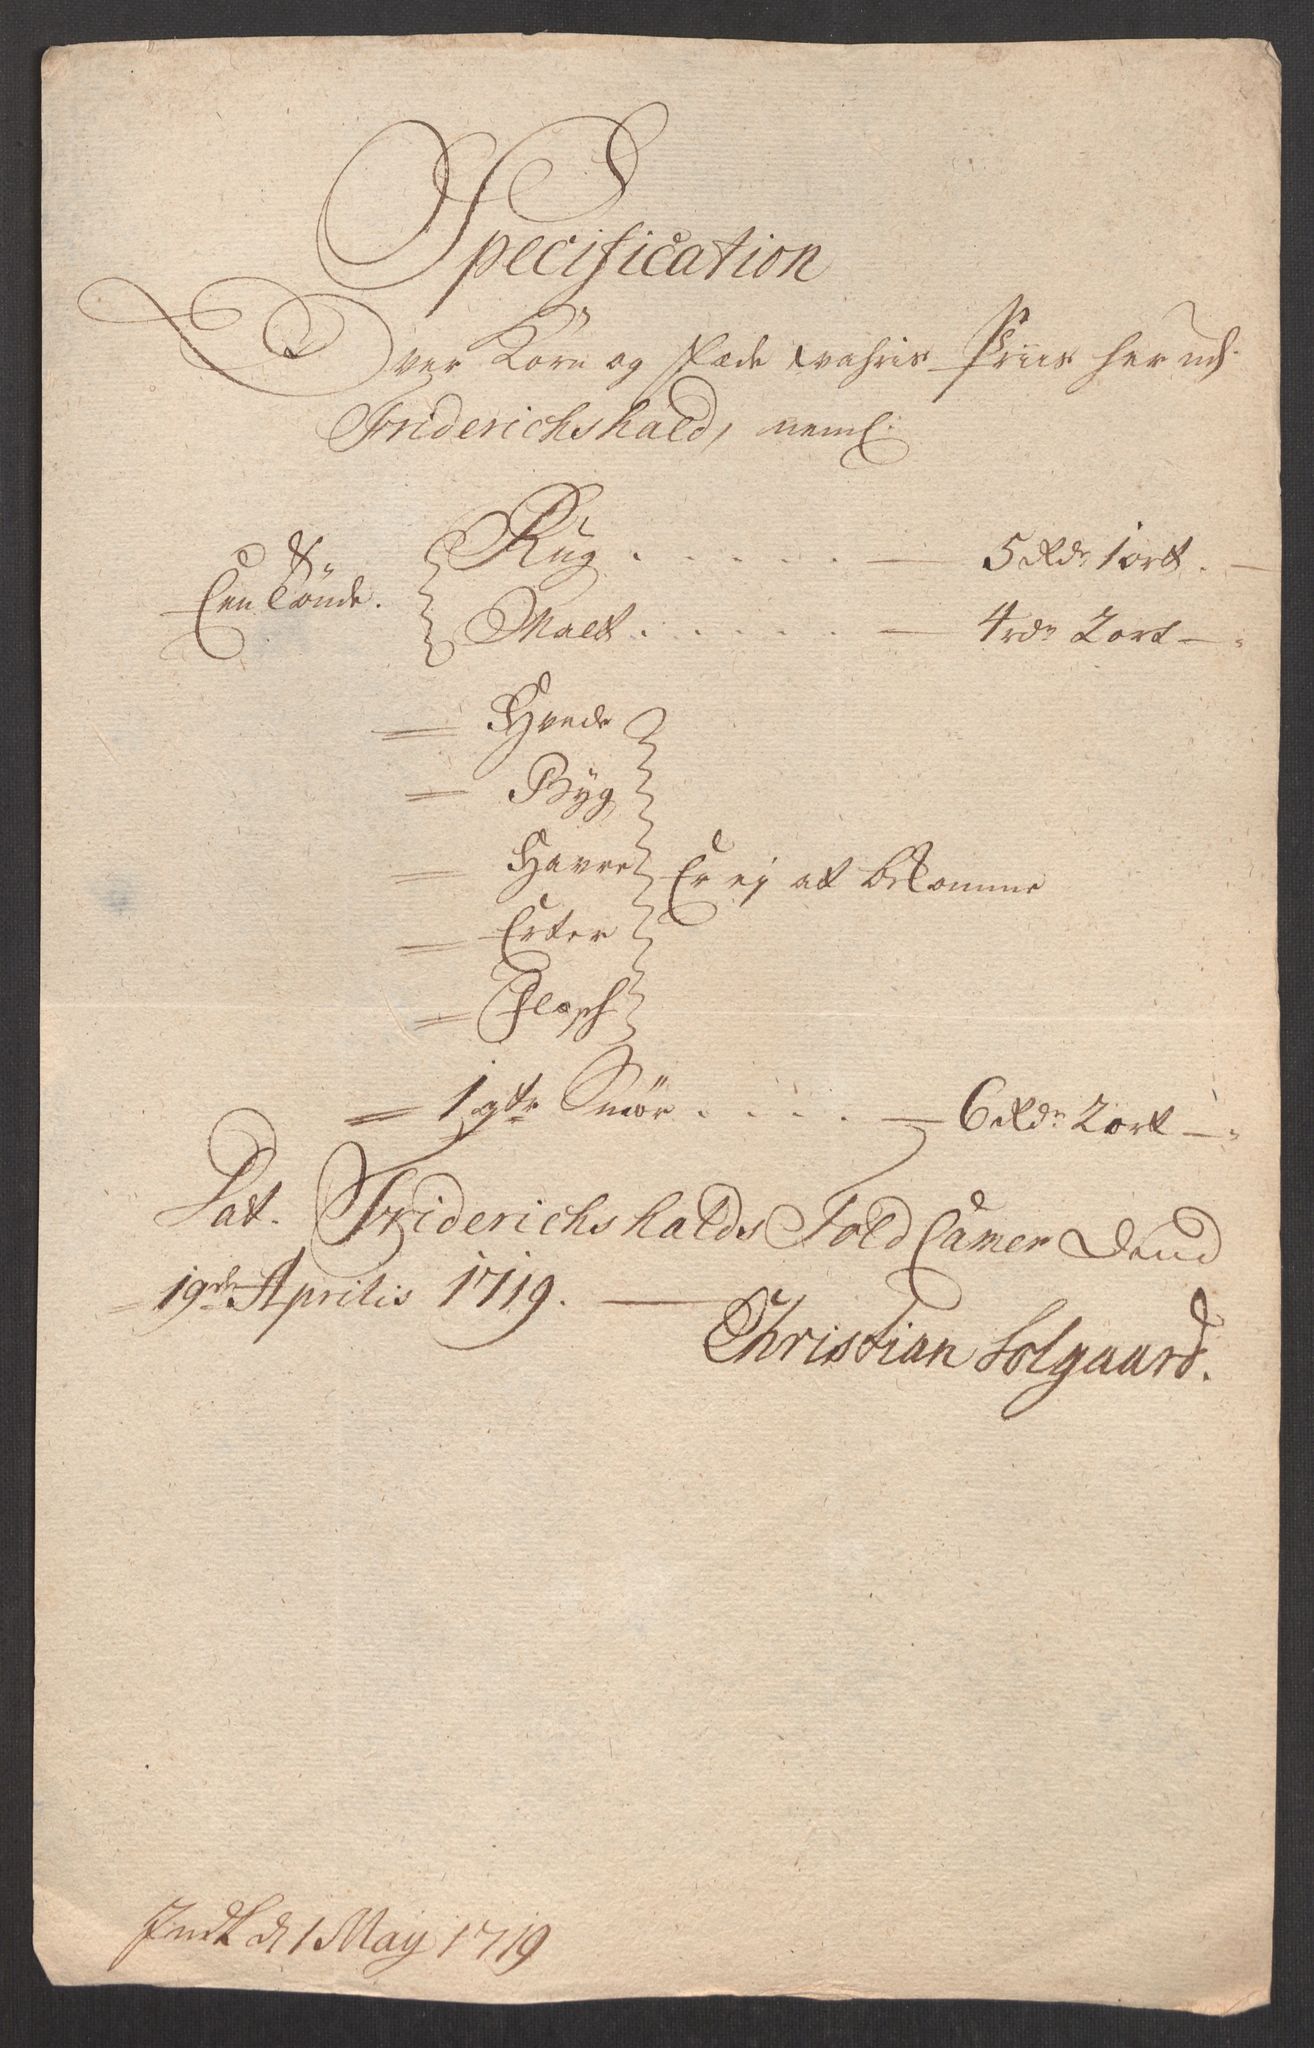 Specification
Over Korn og fæde wahris Priis her udj
Friderichshald, neml:
Een Tønde. Rug . . . . . — 5 Rdr 1 ort. —
Malt . . . . . — 4 rdr 2 ort —
= Hvede
= Byg
= Havre
Er ej at bekomme
= Erter
= Flesch
= 1 qtr Smør . . . . — 6 Rdr 2 ort —
Dat. Friderichshalds Told Camer Dend
19de Aprilis 1719. —
Christian Solgaard.
Indl d 1 May 1719